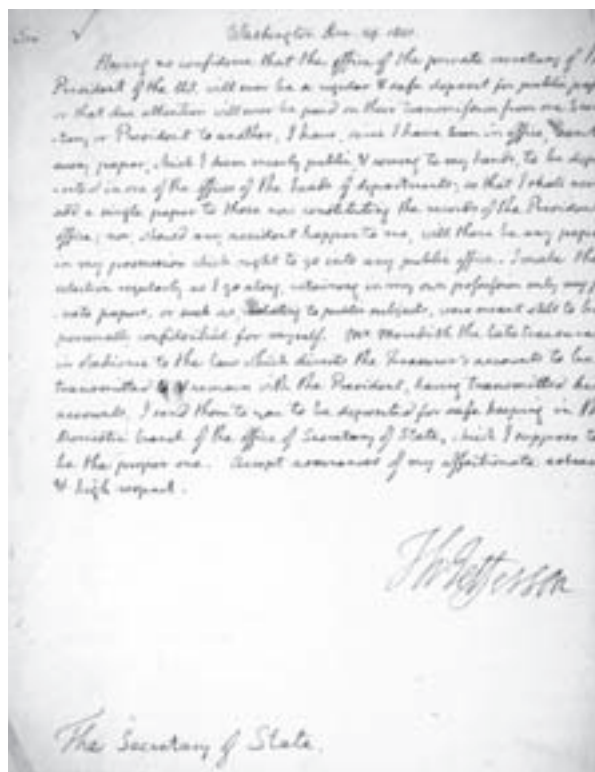 Sir Washington Dec. 29. 1801.
Having no confidence that the office of the private secretary of the
President of the US. will ever be a regular & safe deposit for public pap
or that due attention will ever be paid on their transmission from one Secre
tary or President to another, I have, since I have been in office,
every paper, which I deem merely public & coming to my hands, to be dep
osited in one of the offices of the heads of departments; so that I shall never
add a single paper to those now constituting the records of the President's
office; nor, should any accident happen to me, will there be any papers
in my possession which ought to go into any public office. I make the
selection regularly as I go along, retaining in my own possession only my pri
-vate papers, or such as, relating to public subjects, were meant still to be
personally confidential for myself. Mr Meredith the late treasurer
in obedience to the law which directs the Treasurer's accounts to be
transmitted & remain with the President, having transmitted his
accounts, I send them to you to be deposited for safe keeping in the
Domestic branch of the office of Secretary of State, which I suppose to
be the proper one. Accept assurances of my affectionate esteem
& high respect.
Th Jefferson
The Secretary of State.